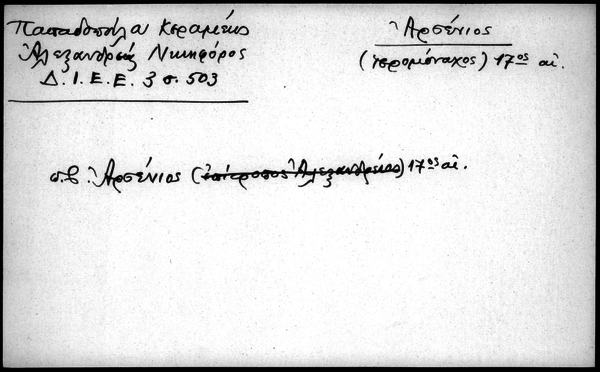 Παπαδοπούλου Κεραμέως
Ἀλεξανδρείας Νικηφόρος
Δ.Ι.Ε.Ε. 3 σ. 503
Ἀρσένιος
(ἱερομόναχος) 17ος αἰ.
σ.β. Ἀρσένιος (ἐπίτροπος Ἀλεξανδρείας) 17ος αἰ.